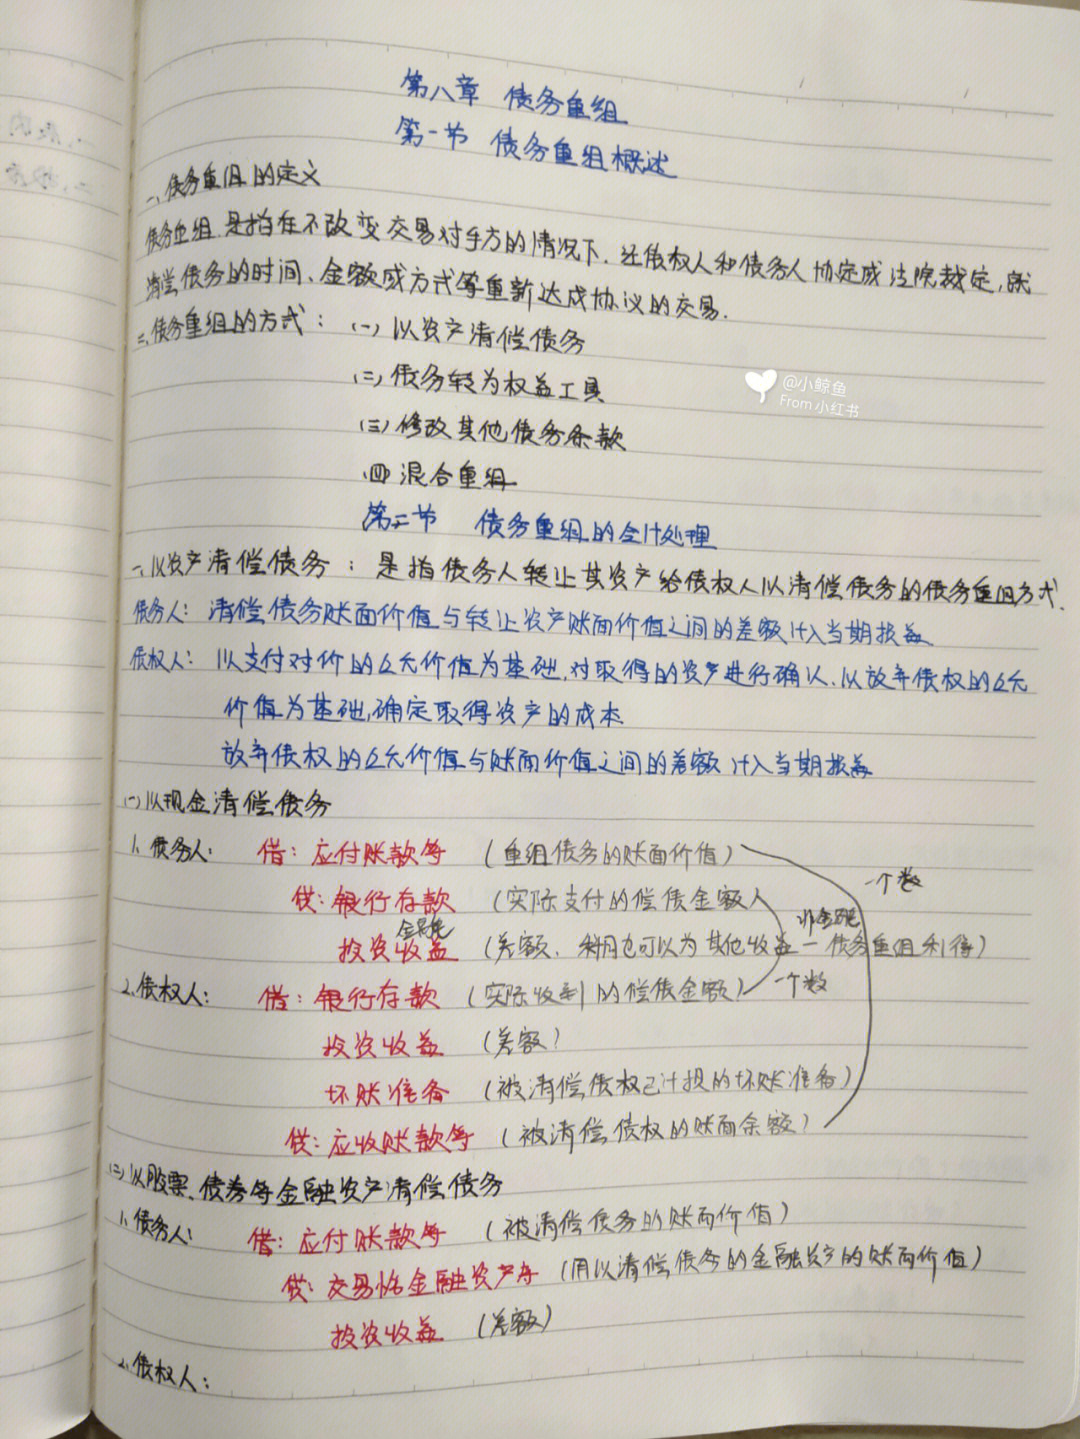 第八章 债务重组
第一节 债务重组概述
一、债务重组的定义
债务重组是指在不改变交易对手方的情况下,经债权人和债务人协定或法院裁定,就
清偿债务的时间、金额或方式等重新达成协议的交易.
二、债务重组的方式: (一)以资产清偿债务
(二)债务转为权益工具
@小鲸鱼
From 小红书
(三)修改其他债务条款
(四)混合重组
第二节 债务重组的会计处理
一、以资产清偿债务:是指债务人转让其资产给债权人以清偿债务的债务重组方式.
债务人:清偿债务账面价值与转让资产账面价值之间的差额计入当期损益
债权人:以支付对价的公允价值为基础,对取得的资产进行确认,以放弃债权的公允
价值为基础,确定取得资产的成本
放弃债权的公允价值与账面价值之间的差额计入当期损益
(一)以现金清偿债务
1.债务人: 借:应付账款等 (重组债务的账面价值)
一个数
贷:银行存款 (实际支付的偿债金额)
金融
非金融
投资收益 (差额,也可以为其他收益—债务重组利得)
2.债权人: 借:银行存款 (实际收到的偿债金额) 一个数
投资收益 (差额)
坏账准备 (被清偿债权已计提的坏账准备)
贷:应收账款等 (被清偿债权的账面余额)
(二)以股票、债券等金融资产清偿债务
1.债务人: 借:应付账款等 (被清偿债务的账面价值)
贷:交易性金融资产等 (用以清偿债务的金融资产的账面价值)
投资收益 (差额)
2.债权人: